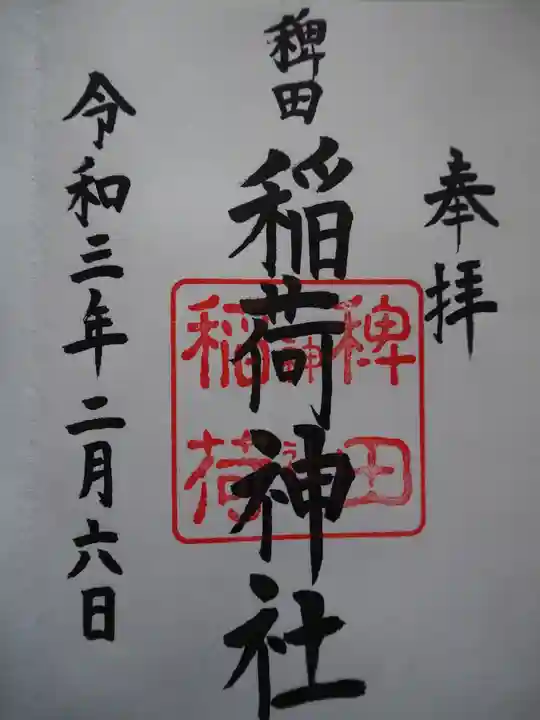 奉拝
稗田
稲荷神社
稗田
神社
稲荷
令和三年二月六日